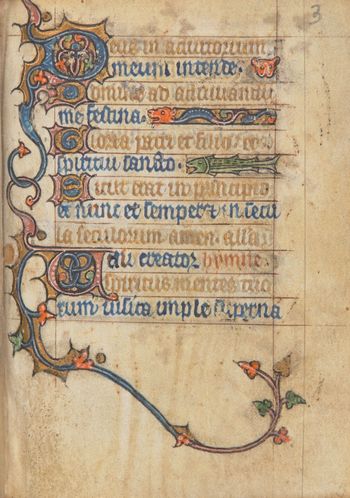 3
Deus in adiutorium
meum intende.
Domine ad adiuuandu
me festina.
Gloria patri et filio et
spiritui sancto.
Sicut erat in principio
et nunc et semper et in secu
la seculorum amen. alla
Ueni creator hymne
spiritus mentes tuo
rum uisita imple superna